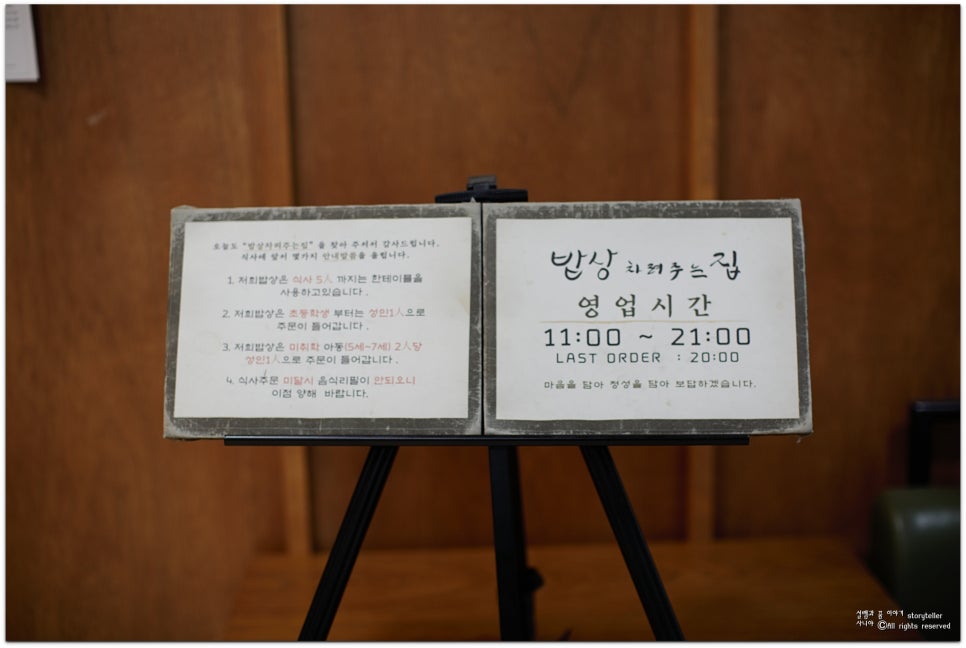 오늘도 "밥상차려주는집" 을 찾아 주셔서 감사드립니다.
식사에 앞서 몇가지 안내말씀을 올립니다.
1. 저희밥상은 식사 5人 까지는 한테이블을
사용하고있습니다 .
2. 저희밥상은 초등학생 부터는 성인1人으로
주문이 들어갑니다 .
3. 저희밥상은 미취학 아동(5세~7세) 2人당
성인1人으로 주문이 들어갑니다 .
4. 식사주문 미달시 음식리필이 안되오니
이점 양해 바랍니다.
밥상 차려주는집
영업시간
11:00 ~ 21:00
LAST ORDER : 20:00
마음을 담아 정성을 담아 보답하겠습니다.
꿈 이야기 storyteller
ⓒAll rights reserved